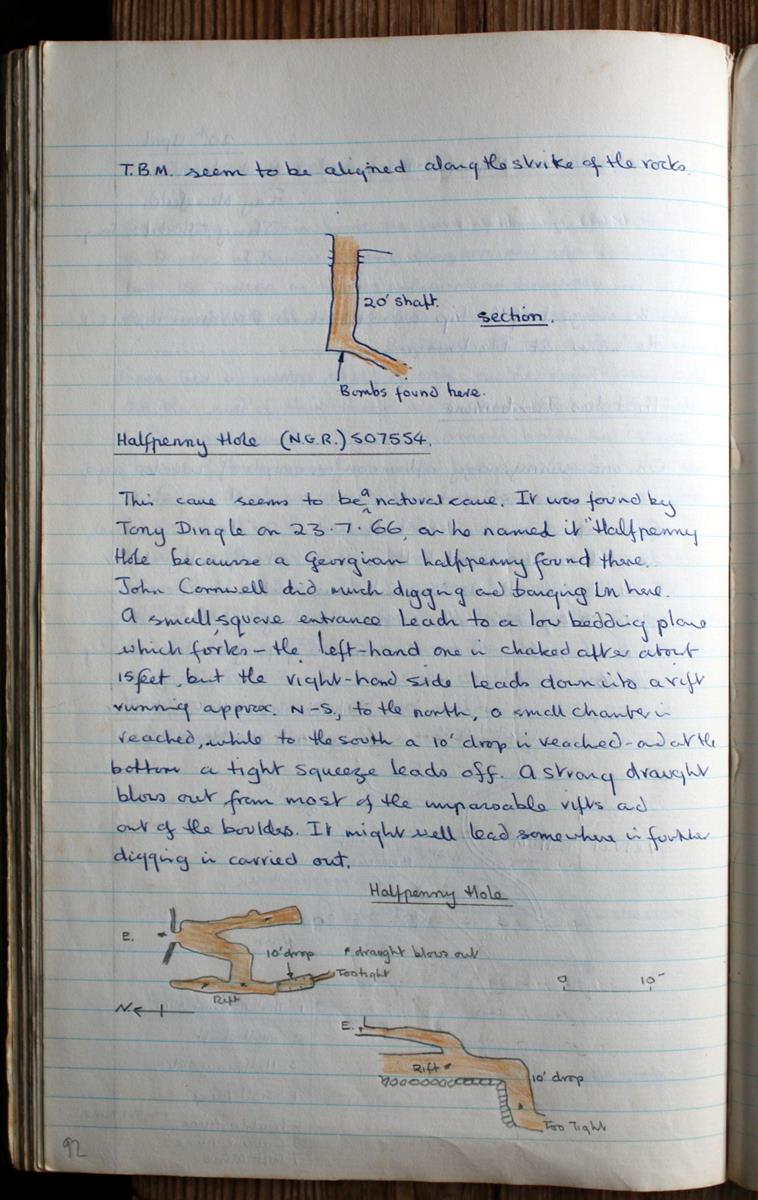 T.B.M. seem to be aligned along the strike of the rocks.
20' shaft.
section.
Bombs found here.
Halfpenny Hole (N.G.R.) 507554.
This cave seems to be a natural cave. It was found by
Tony Dingle on 23.7.66, on he named it "Halfpenny
Hole because a Georgian halfpenny found there.
John Cornwell did much digging and banging in here.
A small, square entrance leads to a low bedding plane
which forks - the left-hand one is choked after about
15 feet, but the right-hand side leads down into a rift
running approx. N-S., to the north, a small chamber is
reached, while to the south a 10' drop is reached - and at the
bottom a tight squeeze leads off. A strong draught
blows out from most of the impassable rifts and
out of the boulders. It might well lead somewhere if further
digging is carried out.
Halfpenny Hole
E.
10' drop
• draught blows out
Too tight
Rift
0 10'
N.
E.
Rift
10' drop
Too Tight
92